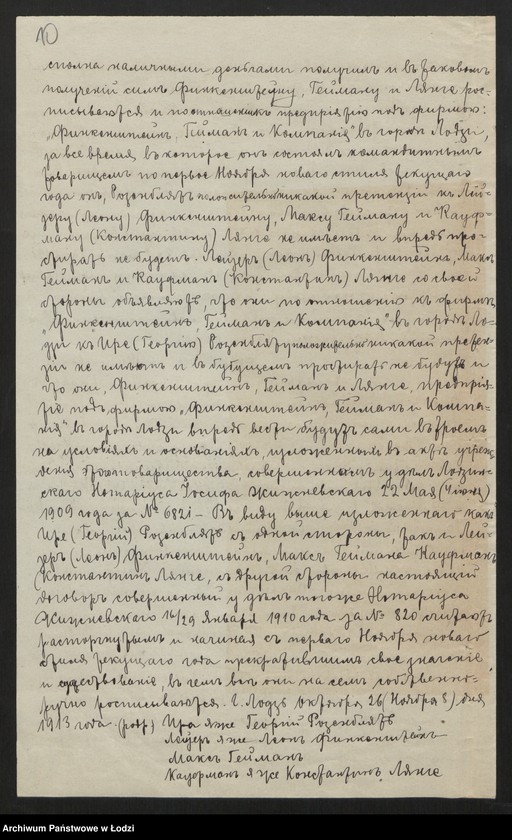 10
сполна наличными деньгами получилъ и въ таковомъ
полученіи симъ Финкенштейну, Гейману и Лянге рос-
писывается и по отношенію къ предпріятію подъ фирмою:
„Финкенштейнъ, Гейманъ и Компанія" въ городѣ Лодзи,
за все время, въ которое онъ состоялъ командитнымъ
товарищемъ по первое Ноября новаго стиля текущаго
года онъ, Розенблятъ положительно никакой претензіи къ Лей-
зеру (Леону) Финкенштейну, Максу Гейману и Кауф-
ману (Константину) Лянге не имѣетъ и впредь про-
стирать не будетъ. Лейзеръ (Леонъ) Финкенштейнъ, Максъ
Гейманъ и Кауфманъ (Константинъ) Лянге со своей
стороны объявляютъ, что они по отношенію къ фирмѣ
„Финкенштейнъ, Гейманъ и Компанія" въ городѣ Ло-
дзи къ Ирѣ (Георгію) Розенбляту положительно никакой претен-
зіи не имѣютъ и въ будущемъ простирать не будутъ и
что они, Финкенштейнъ, Гейманъ и Лянге, предпрія-
тіе подъ фирмою „Финкенштейнъ, Гейманъ и Компа-
нія" въ городѣ Лодзи впредь вести будутъ сами втроемъ
на условіяхъ и основаніяхъ, изложенныхъ въ актѣ учреж-
денія товарищества, совершенномъ у дѣлъ Лодзин-
скаго Нотаріуса Іосифа Жижневскаго 22 Мая (4 Іюня)
1909 года за № 6821 – Въ виду выше изложеннаго какъ
Ира (Георгій) Розенблятъ съ одной стороны, такъ и Лей-
зеръ (Леонъ) Финкенштейнъ, Максъ Гейманъ Кауфманъ
(Константинъ) Лянге, съ другой стороны настоящій
договоръ совершенный у дѣлъ того же Нотаріуса
Жижневскаго 16/29 Января 1910 года за № 820 считаютъ
расторгнутымъ и начиная съ перваго Ноября новаго
стиля текущаго года прекратившимъ свое значеніе
и существованіе, въ чемъ всѣ они на семъ собственно-
ручно росписываются. г. Лодзь октября 26 (Ноября 8) дня
1913 года. (подп) Ира я же Георгій Розенблятъ
Лейзеръ я же Леонъ Финкенштейнъ
Максъ Гейманъ
Кауфманъ я же Константинъ Лянге
Archiwum Państwowe w Łodzi